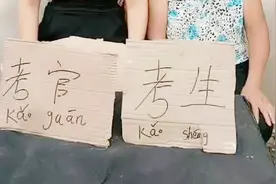 考官
kǎo guān
考生
kǎo shēng